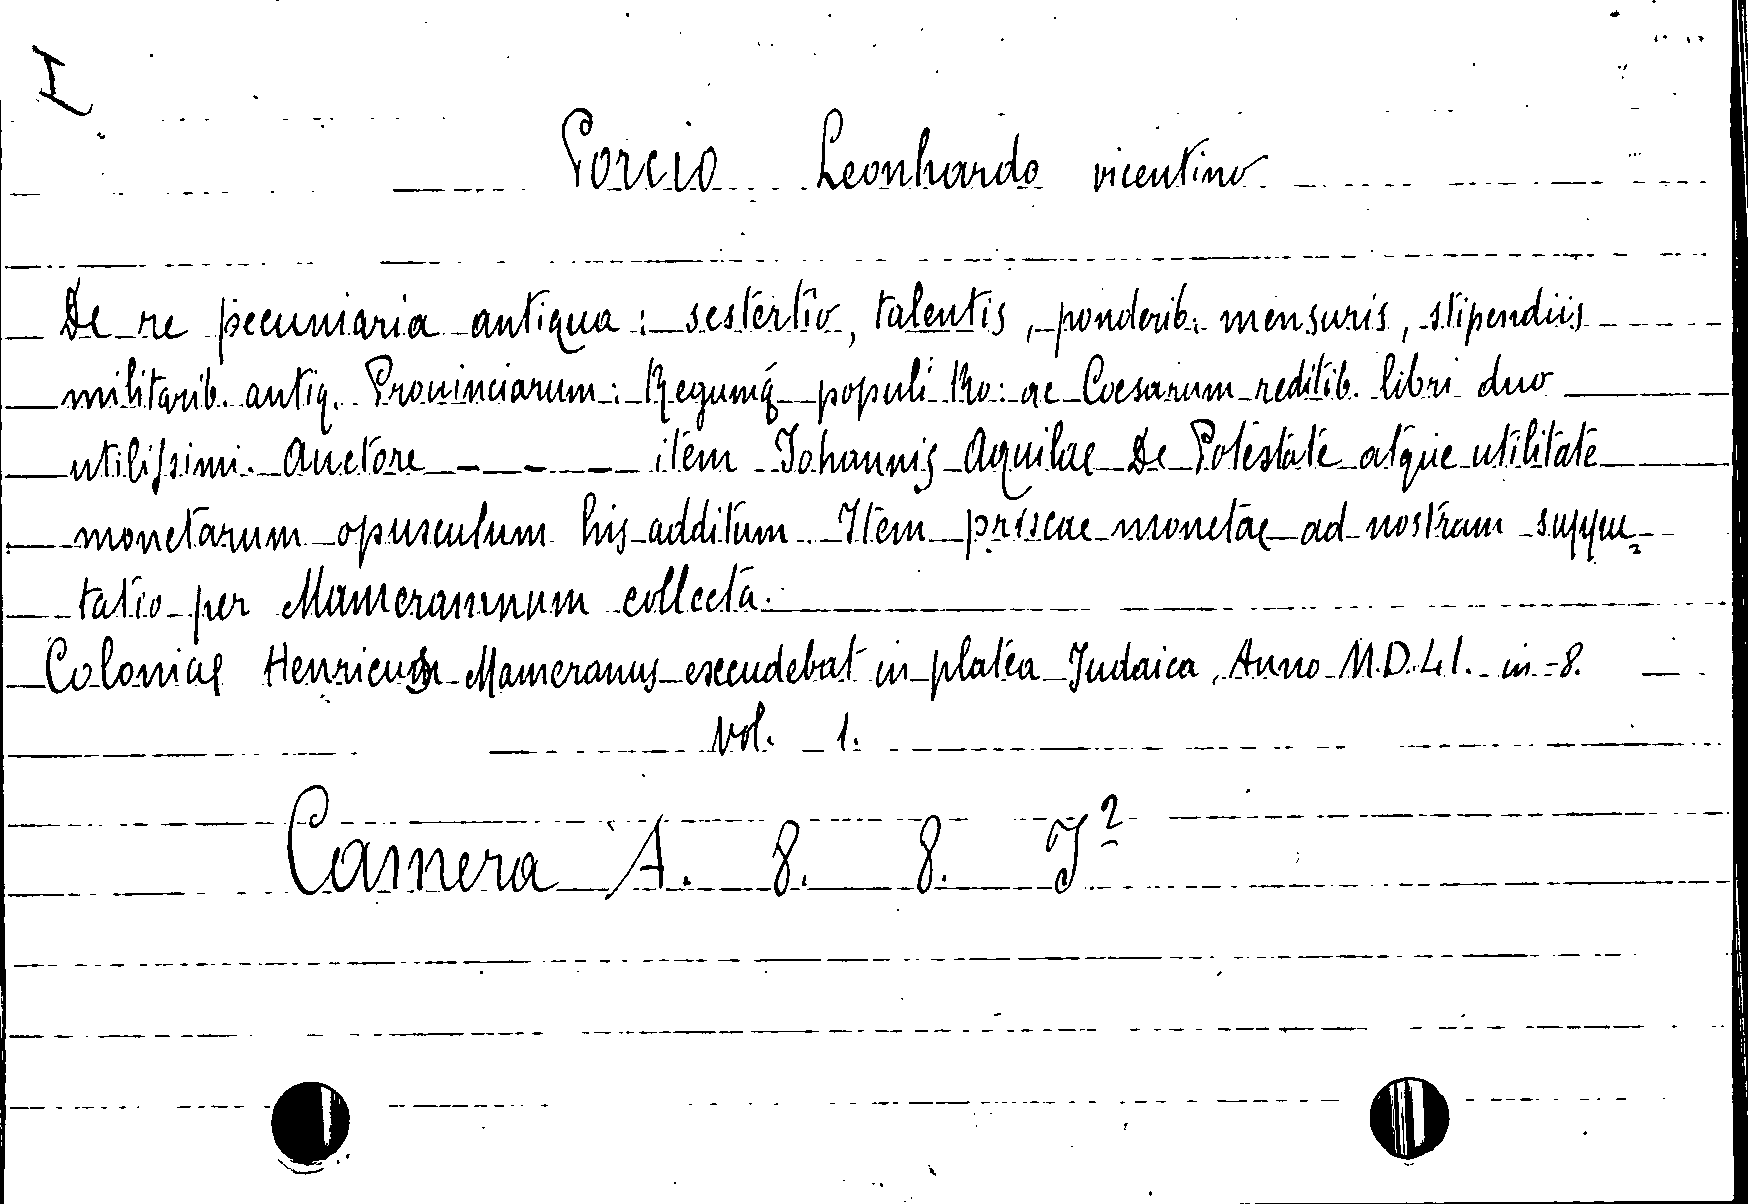 I
Porcio Leonhardo vicentino
De re pecuniaria antiqua : sestertio, talentis, ponderib. mensuris, stipendiis
militarib. antiq. Prouinciarum : Regumq populi Ro : ac Coesarum reditib. libri duo
utilissimi. Auctore ------ item Johannis Aquilae De Potestate atque utilitate
monetarum opusculum his additum. Item priscae monetae ad nostram suppu-
tatio per Mameramnum collecta.
Coloniae Henricus Mameranus excudebat in platea Judaica, Anno M.D.LI. in-8.
Vol. 1.
Camera A. 8. 8. J²